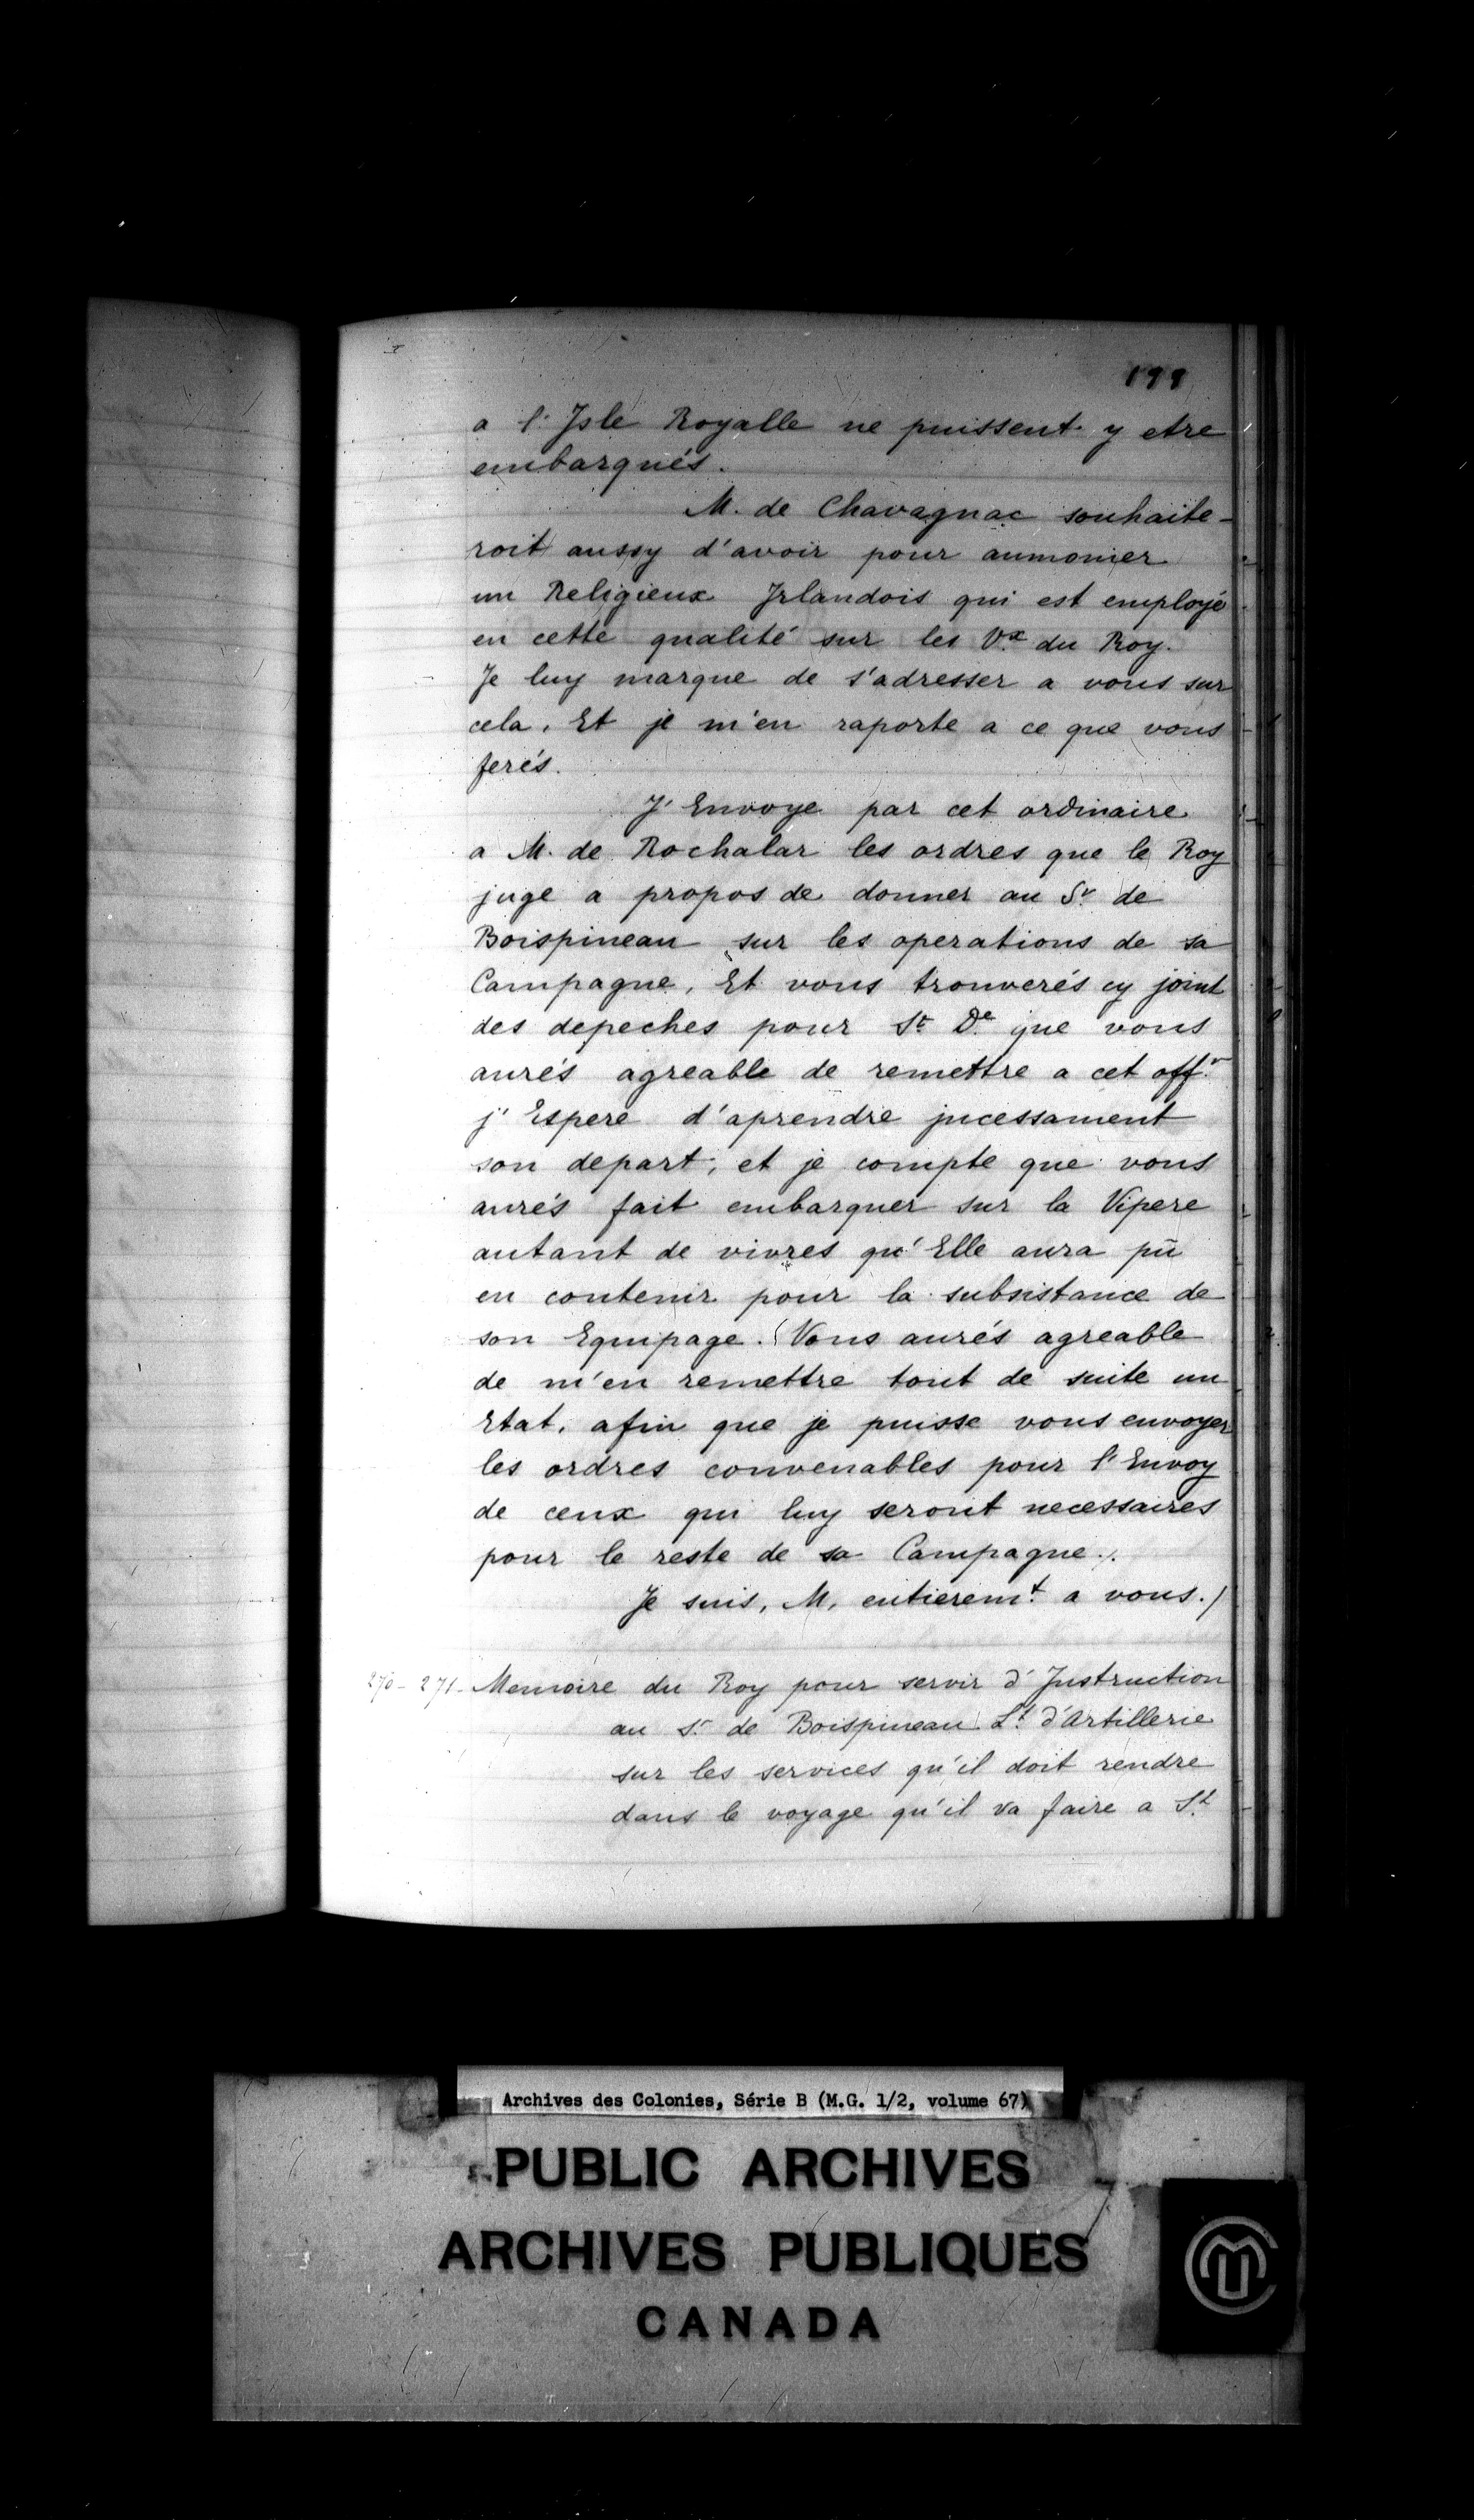 199
a l'Isle Royalle ne puissent y etre
embarqués.
M. de Chavagnac souhaite-
roit aussy d'avoir pour aumonier
un Religieux Irlandois qui est employé
en cette qualité sur les Vx du Roy.
Je luy marque de s'adresser a vous sur
cela, Et je m'en raporte a ce que vous
ferés.
J'Envoye par cet ordinaire
a M. de Rochalar les ordres que le Roy
juge a propos de donner au Sr de
Boispineau sur les operations de sa
Campagne, Et vous trouverés cy joint
des depeches pour St De que vous
aurés agreable de remettre a cet offr
j'Espere d'aprendre incessament
son depart, et je compte que vous
aurés fait embarquer sur la Vipere
autant de vivres qu'Elle aura pû
en contenir pour la subsistance de
son Equipage. Vous aurés agreable
de m'en remettre tout de suite un
Etat, afin que je puisse vous envoyer
les ordres convenables pour l'Envoy
de ceux qui luy seront necessaires
pour le reste de sa Campagne./.
Je suis, M, entieremt a vous./
270-271- Memoire du Roy pour servir d'Instruction
au Sr de Boispineau Lt d'Artillerie
sur les services qu'il doit rendre
dans le voyage qu'il va faire a St
Archives des Colonies, Série B (M.G. 1/2, volume 67)
PUBLIC ARCHIVES
ARCHIVES PUBLIQUES
CANADA